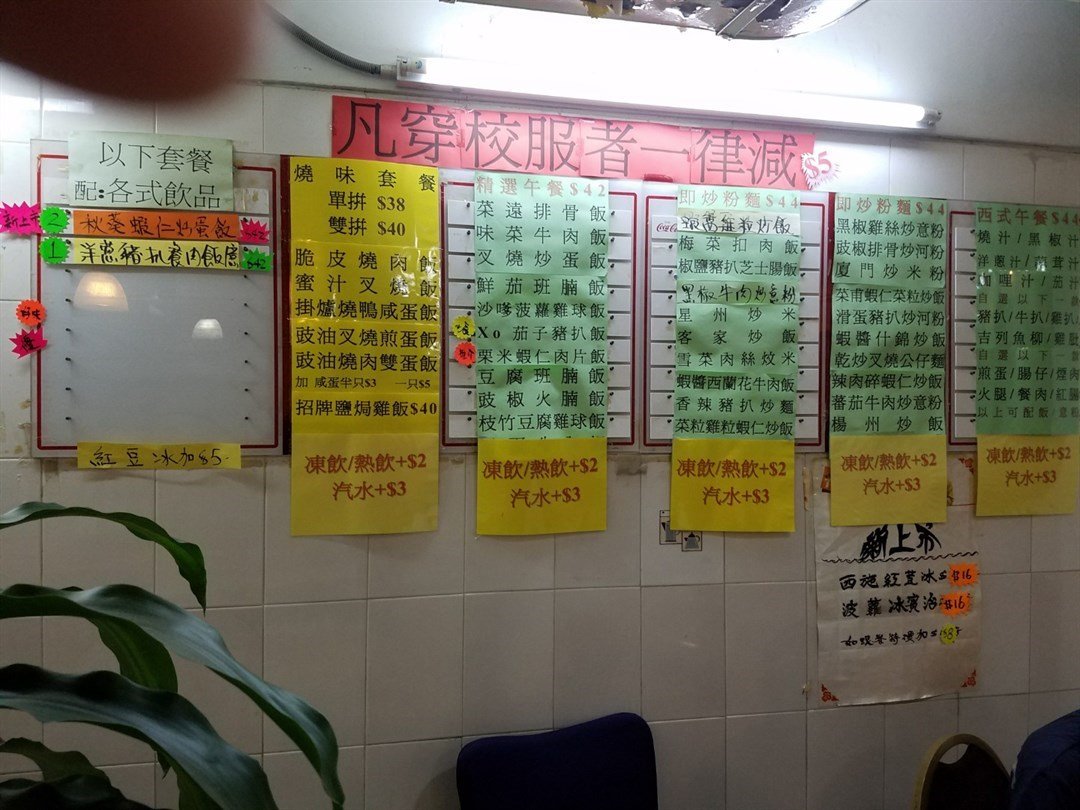 凡穿校服者一律減
$5
以下套餐
配:各式飲品
新上市
2 秋葵蝦仁炒蛋飯
1
紅豆冰加$5
燒味套餐
單拼 $38
雙拼 $40
脆皮燒肉飯
蜜汁叉燒飯
掛爐燒鴨咸蛋飯
豉油叉燒煎蛋飯
豉油燒肉雙蛋飯
加 咸蛋半只$3 一只$5
招牌鹽焗雞飯$40
凍飲/熱飲+$2
汽水+$3
精選午餐$42
菜遠排骨飯
味菜牛肉飯
叉燒炒蛋飯
鮮茄班腩飯
沙嗲菠蘿雞球飯
Xo 茄子豬扒飯
栗米蝦仁肉片飯
豆腐班腩飯
豉椒火腩飯
枝竹豆腐雞球飯
凍飲/熱飲+$2
汽水+$3
即炒粉麵$44
Coca-Cola
梅菜扣肉飯
椒鹽豬扒芝士腸飯
黑椒牛肉炒意粉
星州炒米
客家炒飯
雪菜肉絲炆米
蝦醬西蘭花牛肉飯
香辣豬扒炒麵
菜粒雞粒蝦仁炒飯
凍飲/熱飲+$2
汽水+$3
即炒粉麵$44
黑椒雞絲炒意粉
豉椒排骨炒河粉
廈門炒米粉
菜甫蝦仁菜粒炒飯
滑蛋豬扒炒河粉
蝦醬什錦炒飯
乾炒叉燒公仔麵
辣肉碎蝦仁炒飯
蕃茄牛肉炒意粉
楊州炒飯
凍飲/熱飲+$2
汽水+$3
西式午餐$44
燒汁/黑椒汁
洋蔥汁/蘑茸汁
咖喱汁/茄汁
自選以下一款
豬扒/牛扒/雞扒
吉列魚柳/雞肶
自選以下一款
煎蛋/腸仔/煙肉
火腿/餐肉/紅腸
以上可配飯/意粉
凍飲/熱飲+$2
汽水+$3
新上市
西施紅荳冰 $16
波蘿冰賓治 $16